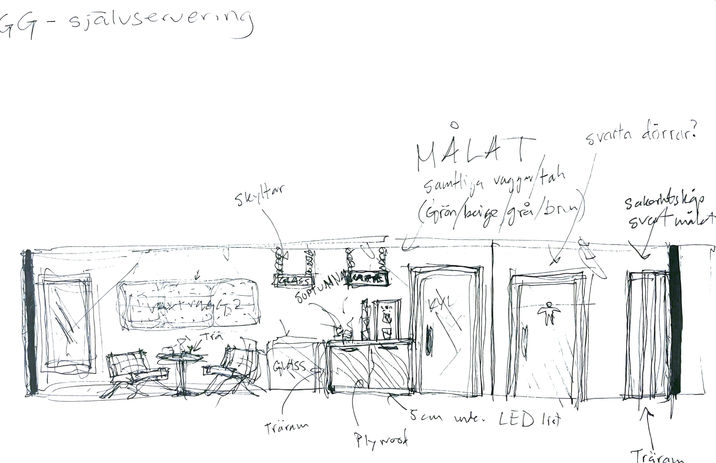 GG - självservering
MÅLAT
svarta dörrar?
samtliga väggar/tak
(Grön/beige/grå/brun)
skyltar
svart målat
GLASS
SOPTUNNA
växtvägg?
Trä
GLASS
Träram
Plywood
5cm
LED list
Träram